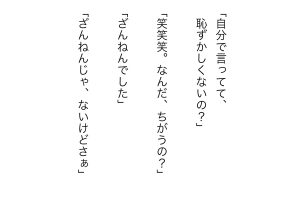 「自分で言ってて、
恥ずかしくないの？」
「笑笑笑。なんだ、ちがうの？」
「ざんねんでした」
「ざんねんじゃ、ないけどさぁ」